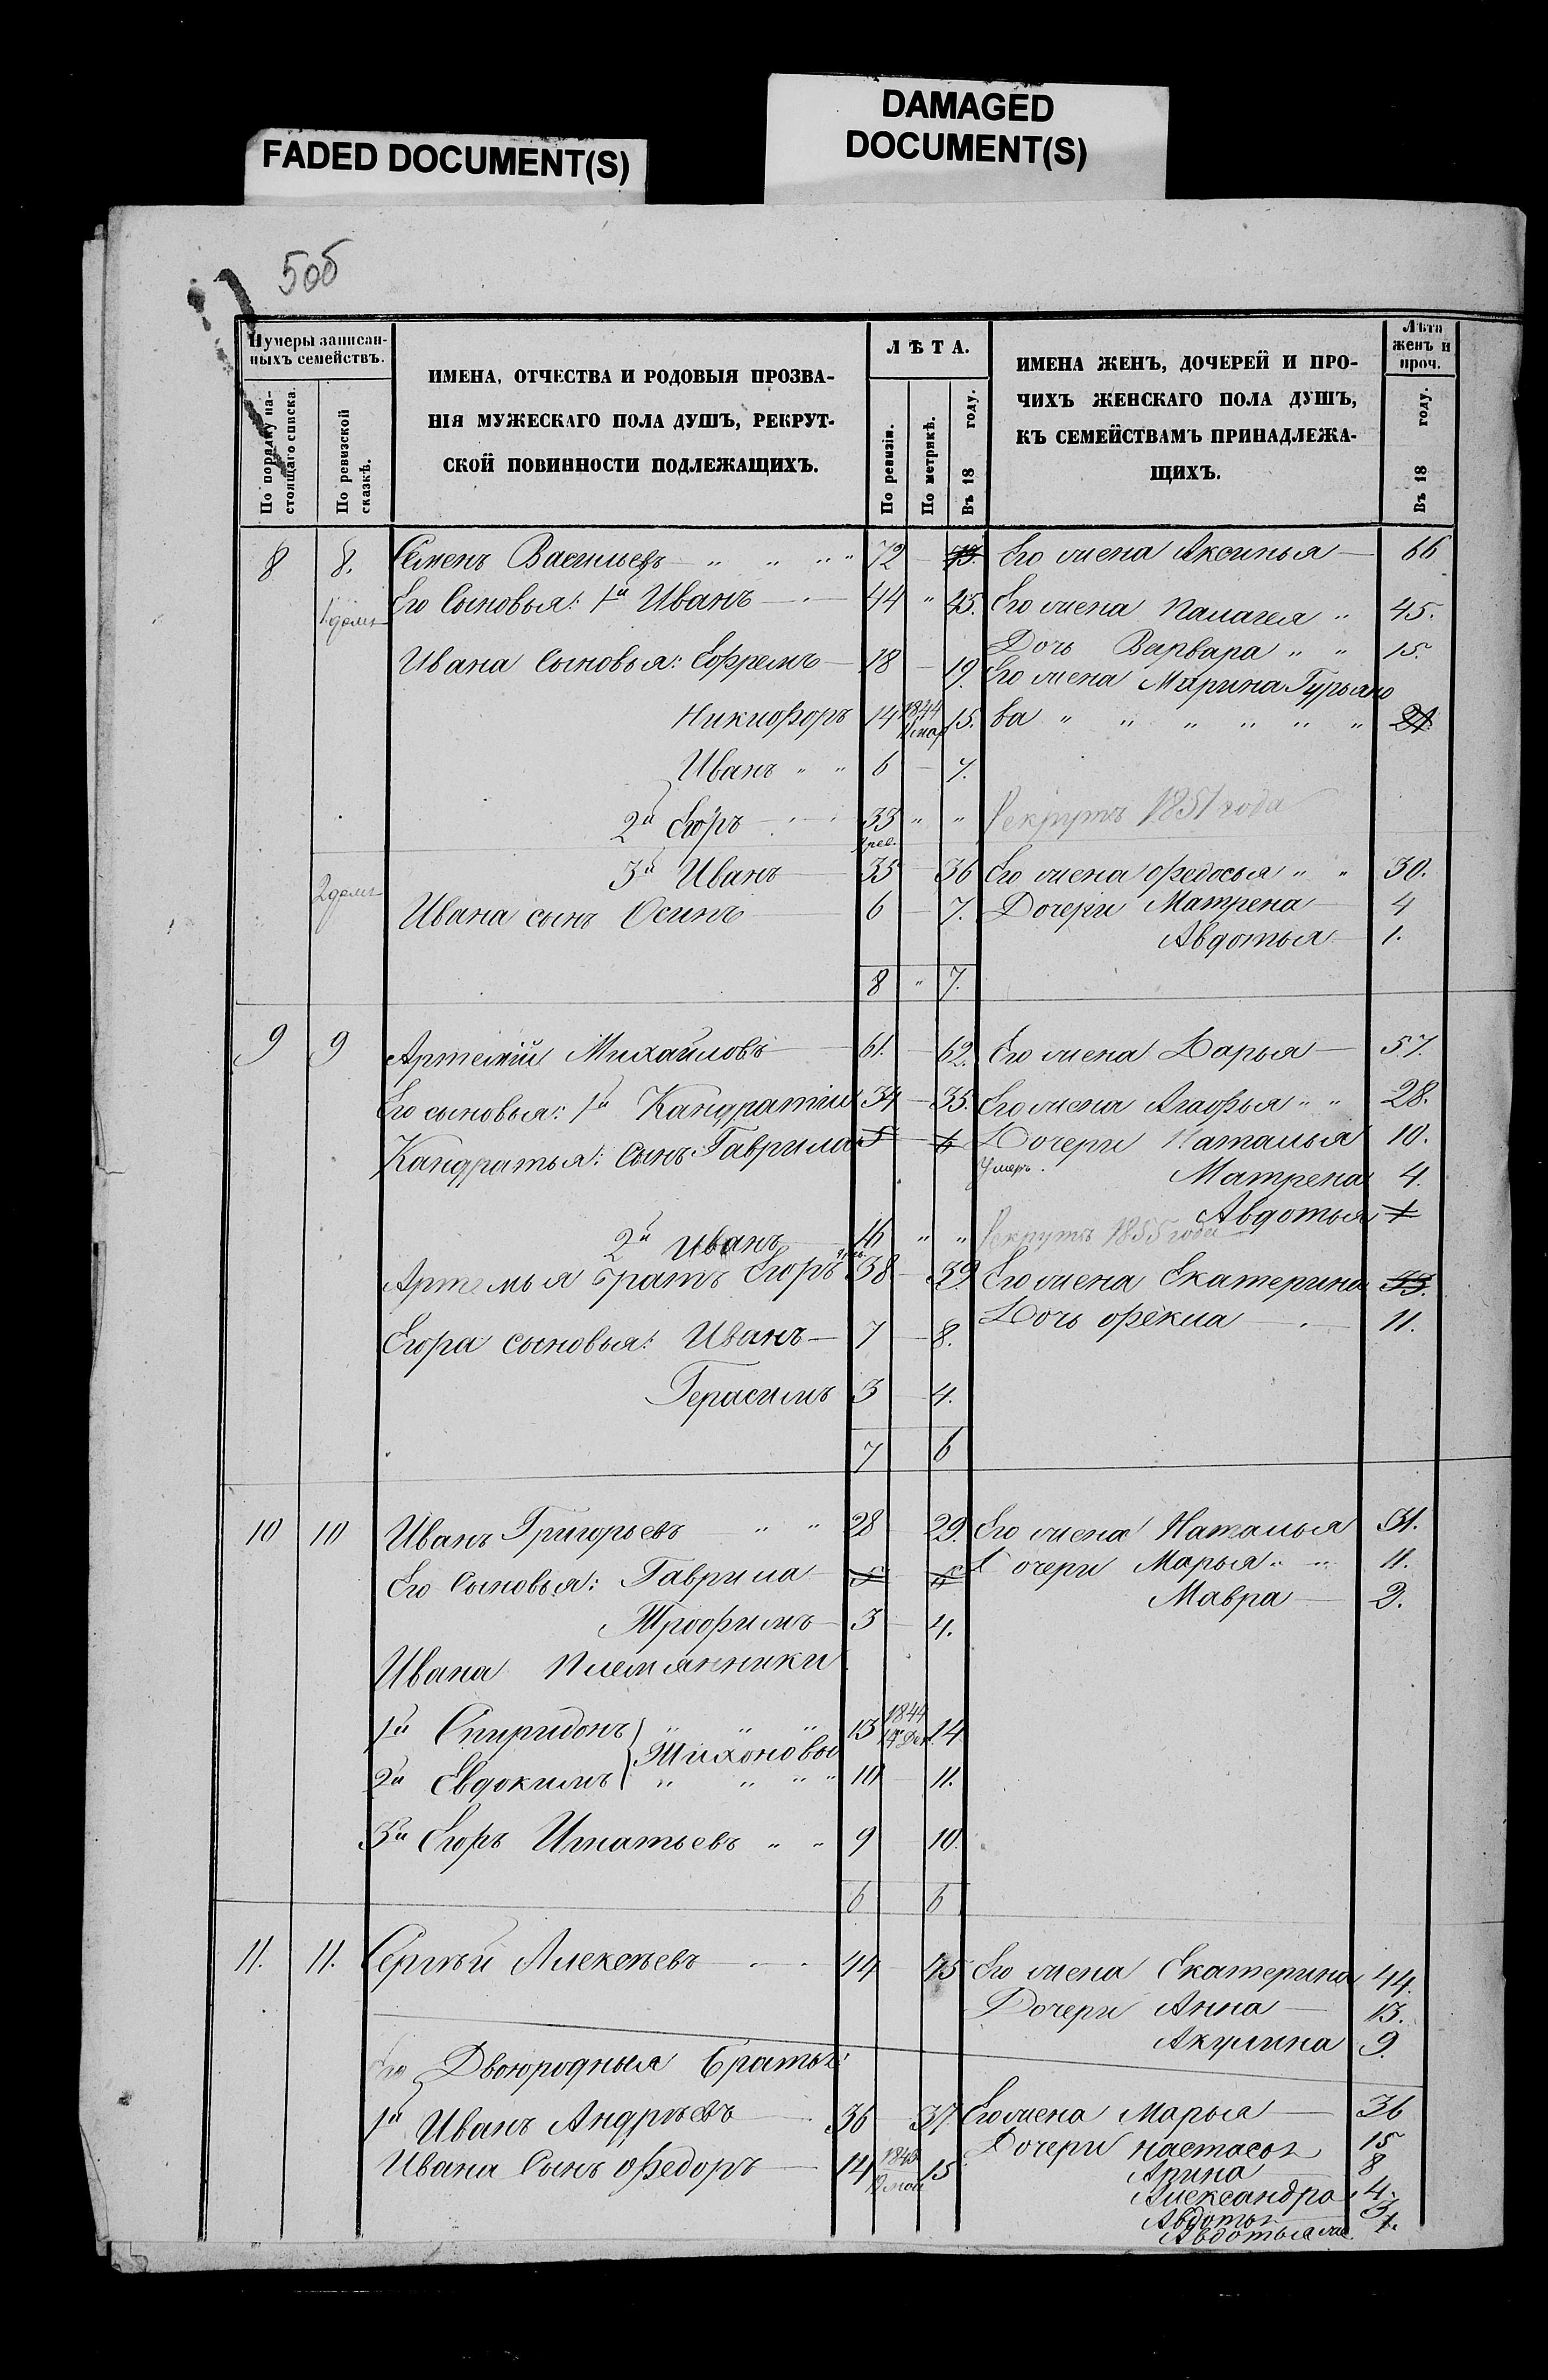 FADED DOCUMENT(S)
DAMAGED
DOCUMENT(S)
5об
Нумеры записан-
ныхъ семействъ.
По порядку на-
стоящаго списка.
По ревизской
сказкѣ.
ИМЕНА, ОТЧЕСТВА И РОДОВЫЯ ПРОЗВА-
НІЯ МУЖЕСКАГО ПОЛА ДУШЪ, РЕКРУТ-
СКОЙ ПОВИННОСТИ ПОДЛЕЖАЩИХЪ.
ЛѢТА.
По ревизіи.
По метрикѣ.
Въ 18 году.
ИМЕНА ЖЕНЪ, ДОЧЕРЕЙ И ПРО-
ЧИХЪ ЖЕНСКАГО ПОЛА ДУШЪ,
КЪ СЕМЕЙСТВАМЪ ПРИНАДЛЕЖА-
ЩИХЪ.
Лѣта
женъ и
проч.
Въ 18 году.
8 8. Семенъ Васильевъ — „ „ „ „ 72 — 73. Его жена Аксинья — 66
1 домъ Его Сыновья: 1й Иванъ — 44 „ 45. Его жена Палагея „ 45.
Дочь Варвара „ „ 15.
Ивана Сыновья: Ефремъ — 18 — 19. Его жена Марина Гурьяно
Никифоръ 14 1844 15. ва „ „ „ „ „ „ 21.
Иванъ „ „ 6 — 7.
2й Егоръ 33 „ „ Рекрутъ 1851 года
3й Иванъ 35 — 36 Его жена Федосья „ „ 30.
2 домъ Ивана сынъ Осипъ 6 — 7. Дочери Матрена — 4
Авдотья — 1.
8 „ 7.
9 9 Артемій Михайловъ 61. — 62. Его жена Дарья — 57.
Его сыновья: 1й Кандратій 34 — 35. Его жена Агафья „ „ 28.
Кандратья: Сынъ Гаврила 5 — 6 Дочери Наталья 10.
Умеръ. Матрена 4.
Авдотья 1
2й Иванъ 16 „ „ Рекрутъ 1855 года
Артемья братъ Егоръ 38 — 39. Его жена Екатерина 33.
Дочь Фекла — 11.
Егора сыновья: Иванъ — 7 — 8.
Герасимъ 3 — 4.
7 6
10 10 Иванъ Григорьевъ „ „ 28 29. Его жена Наталья 31.
Его Сыновья: Гаврила 5 6 Дочери Марья „ „ 11.
Мавра — 2.
Трофимъ — 3 — 4.
Ивана племянники
1й Спиридонъ „ „ „ 13 1844 14
Тихоновы
2й Евдокимъ „ „ „ „ 10 — 11.
3й Егоръ Игнатьевъ „ „ 9 10.
6 6
11. 11. Сергѣй Алексѣевъ — 44 45 Его жена Екатерина 44.
Дочери Анна — 13.
Акулина 9.
Его Двоюродныя братья:
1й Иванъ Андрѣевъ 36 — 37. Его жена Марья — 36
Дочери Настасья 15
Ивана Сынъ Федоръ — 14 15
Арина 8
Александра 4.
Авдотья 3
Авдотья 1.